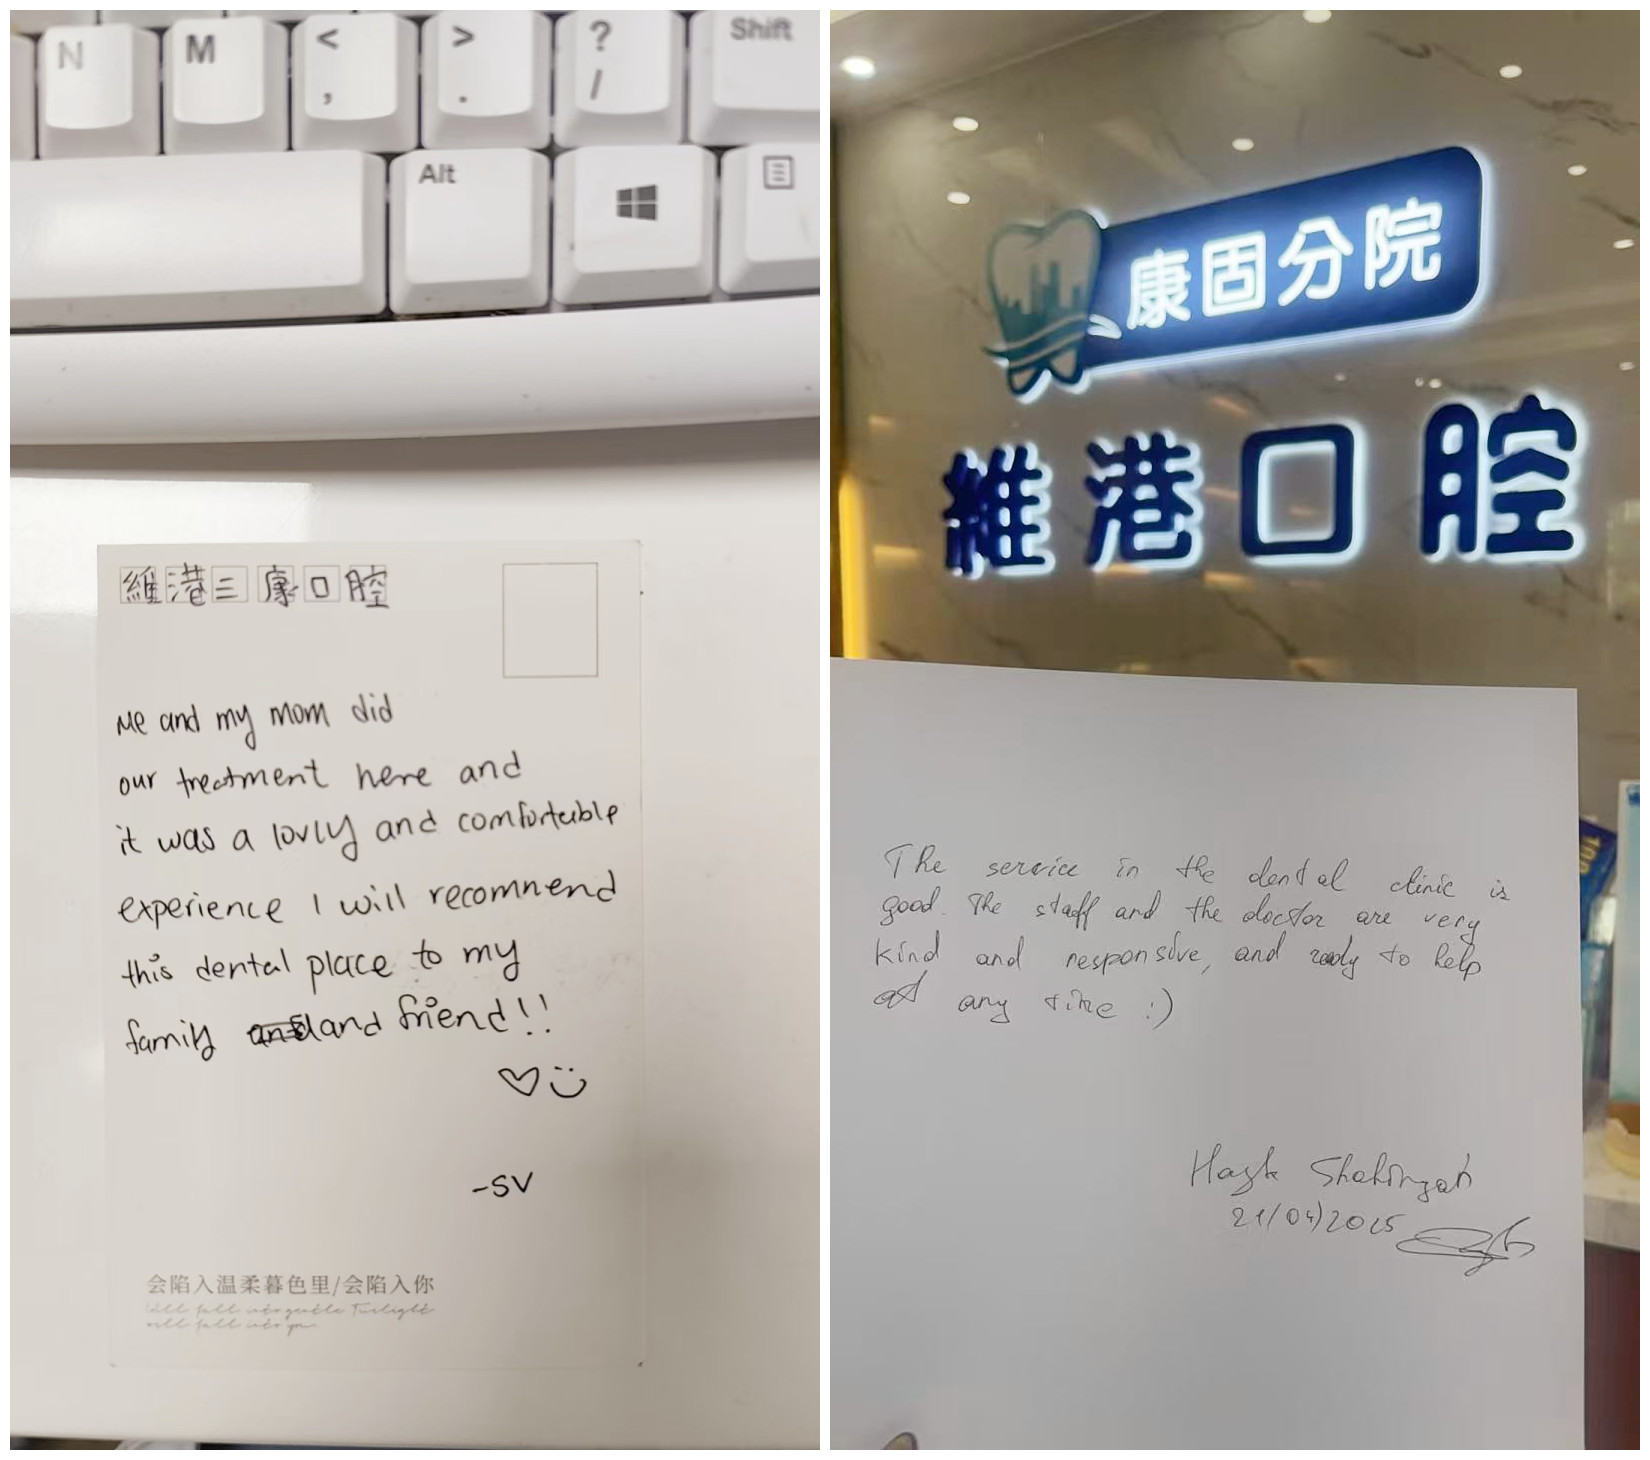 N M < , > . ? / Shift
Alt
維港三康口腔
Me and my mom did
our treatment here and
it was a lovly and comfortable
experience I will recommend
this dental place to my
family and friend!!
-SV
会陷入温柔暮色里/会陷入你
Will fall into gentle Twilight
will fall into you
康固分院
維港口腔
100
The service in the dental clinic is
good. The staff and the doctor are very
kind and responsive, and ready to help
at any time :)
21/04/2025